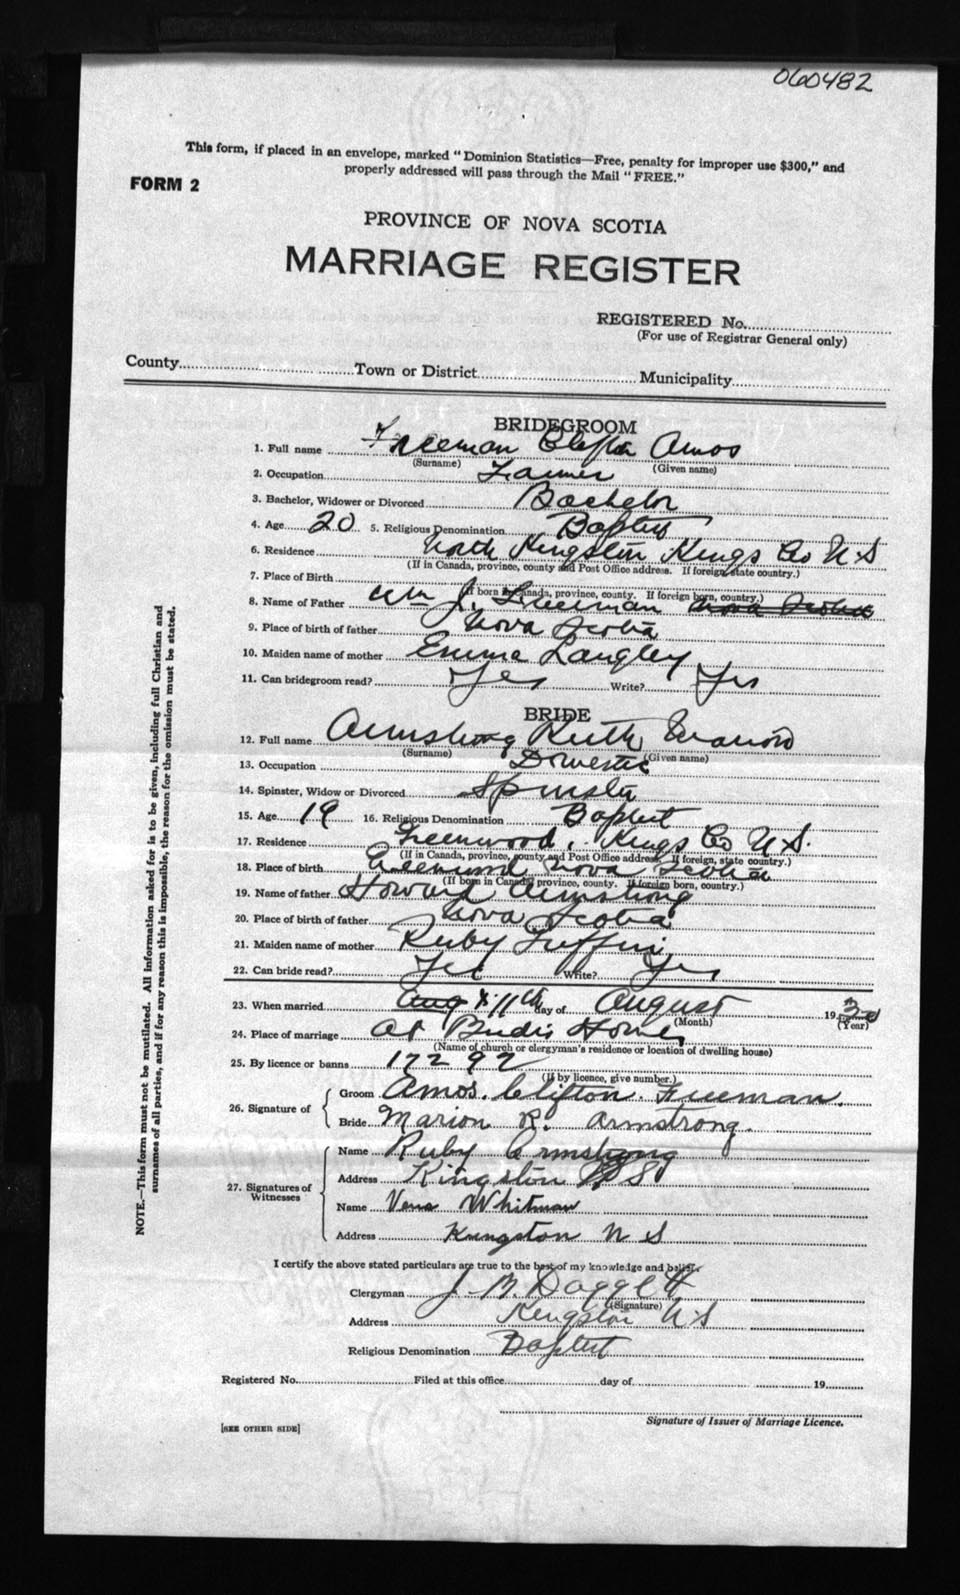 060482
This form, if placed in an envelope, marked "Dominion Statistics—Free, penalty for improper use $300," and
properly addressed will pass through the Mail "FREE."
FORM 2
PROVINCE OF NOVA SCOTIA
MARRIAGE REGISTER
REGISTERED No.
(For use of Registrar General only)
County Town or District Municipality
BRIDEGROOM
1. Full name Freeman Clifton Amos
(Surname) (Given name)
2. Occupation Farmer
3. Bachelor, Widower or Divorced Bachelor
4. Age 20 5. Religious Denomination Baptist
6. Residence North Kingston Kings Co N S
(If in Canada, province, county and Post Office address. If foreign, state country.)
7. Place of Birth
(If born in Canada, province, county. If foreign born, country.)
8. Name of Father Wm J. Freeman Nova Scotia
9. Place of birth of father Nova Scotia
10. Maiden name of mother Emma Langley
11. Can bridegroom read? Yes Write? Yes
BRIDE
12. Full name Armstrong Ruth Marion
(Surname) (Given name)
13. Occupation Domestic
14. Spinster, Widow or Divorced Spinster
15. Age 19 16. Religious Denomination Baptist
17. Residence Greenwood, Kings Co N.S.
(If in Canada, province, county and Post Office address. If foreign, state country.)
18. Place of birth Greenwood Nova Scotia
(If born in Canada, province, county. If foreign born, country.)
19. Name of father Howard Armstrong
20. Place of birth of father Nova Scotia
21. Maiden name of mother Ruby
22. Can bride read? Yes Write? Yes
23. When married Aug 11th day of August 1930
(Month) (Year)
24. Place of marriage At Brides Home
(Name of church or clergyman's residence or location of dwelling house)
25. By licence or banns 17292
(If by licence, give number.)
26. Signature of
Groom Amos. Clifton. Freeman.
Bride Marion R. Armstrong.
27. Signatures of Witnesses
Name Ruby Armstrong
Address Kingston N S
Name Vera Whitman
Address Kingston N S
I certify the above stated particulars are true to the best of my knowledge and belief.
Clergyman J. M. Daggett
(Signature)
Address Kingston N S
Religious Denomination Baptist
Registered No. Filed at this office day of 19
Signature of Issuer of Marriage Licence.
[SEE OTHER SIDE]
NOTE.—This form must not be mutilated. All information asked for is to be given, including full Christian and
surnames of all parties, and if for any reason this is impossible, the reason for the omission must be stated.